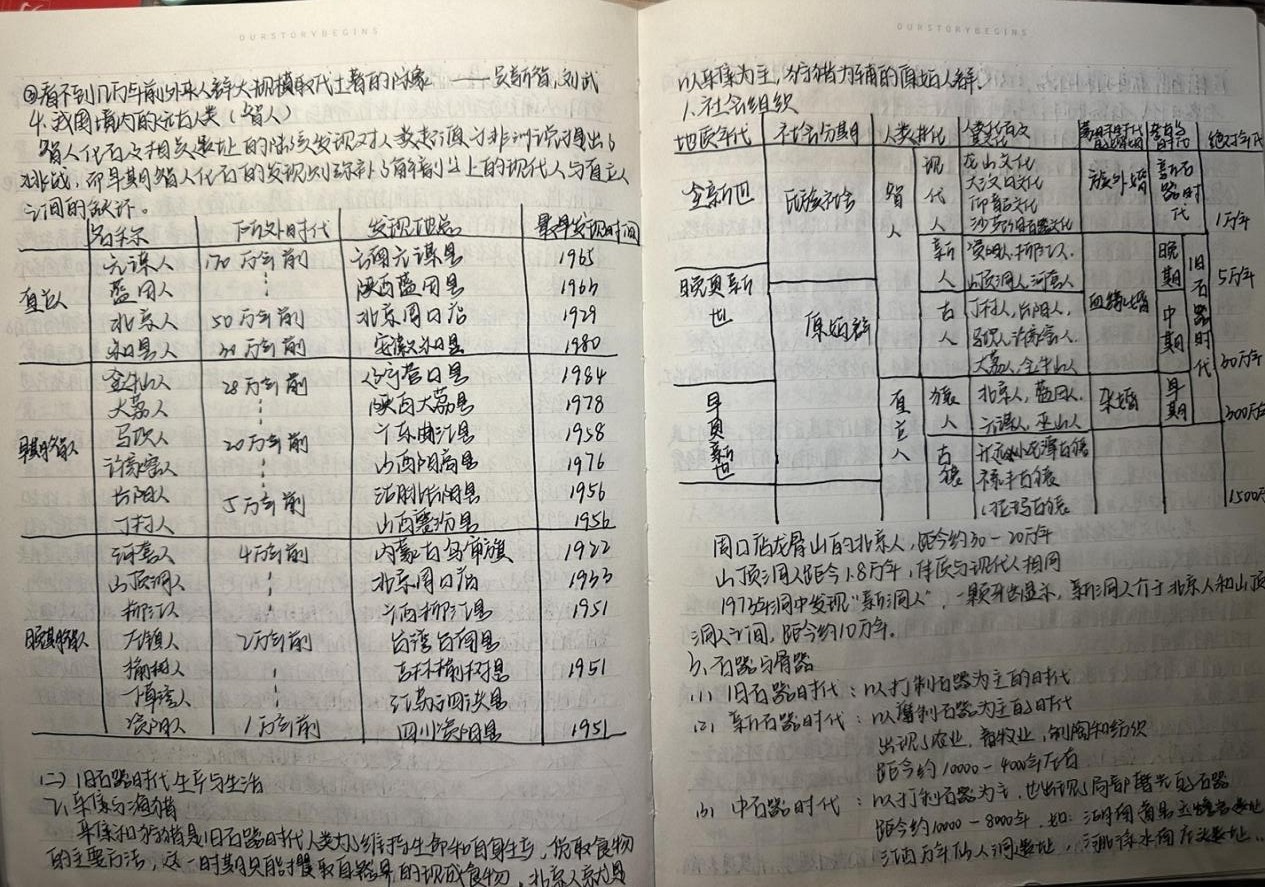 OURSTORYBEGINS
③看不到几万年前外来人群大规模取代土著的迹象 —— 吴新智,刘武
4.我国境内的远古人类(智人)
智人化石及相关遗址的陆续发现对人类起源于非洲说提出了
挑战,而早期智人化石的发现则弥补了解剖学上的现代人与直立人
之间的缺环。
名称 所处时代 发现地点 最早发现时间
直立人
元谋人 170万年前 云南元谋县 1965
蓝田人 陕西蓝田县 1963
北京人 50万年前 北京周口店 1929
和县人 30万年前 安徽和县 1980
早期智人
金牛山人 28万年前 辽宁营口县 1984
大荔人 陕西大荔县 1978
马坝人 20万年前 广东曲江县 1958
许家窑人 山西阳高县 1976
长阳人 5万年前 湖北长阳县 1956
丁村人 山西襄汾县 1956
晚期智人
河套人 4万年前 内蒙古乌审旗 1922
山顶洞人 北京周口店 1933
柳江人 广西柳江县 1951
左镇人 2万年前 台湾台南县
榆树人 吉林榆树县 1951
下草湾人 江苏泗洪县
资阳人 1万年前 四川资阳县 1951
(二)旧石器时代生产与生活
2.采集与渔猎
采集和狩猎是旧石器时代人类为了维持生命和自身生产,获取食物
的主要方法,这一时期只能攫取自然界的现成食物,北京人就是
OURSTORYBEGINS
以采集为主,狩猎为辅的原始人群。
1.社会组织
地质年代 社会分期 人类进化 绝对年代
全新世 氏族社会 智人 现代人 龙山文化 族外婚 新石器时代
大汶口文化
仰韶文化
1万年
晚更新世 新人 资阳人,柳江人. 晚期 旧石器时代
山顶洞人,河套人
5万年
原始群 古人 丁村人,长阳人, 血缘婚 中期
马坝人,许家窑人.
大荔人,金牛山人
30万年
早更新世 直立人 猿人 北京人,蓝田人. 杂婚 早期
元谋人,巫山人
300万年
古猿
禄丰古猿
拉玛古猿
1500万
周口店龙骨山的北京人,距今约30-20万年
山顶洞人距今1.8万年,体质与现代人相同
1973年洞中发现“新洞人”,一颗牙齿显示,新洞人介于北京人和山顶
洞人之间,距今约10万年。
3、石器与骨器
(1) 旧石器时代:以打制石器为主的时代
(2) 新石器时代:以磨制石器为主的时代
出现了农业,畜牧业,制陶和纺织
距今约10000-4000年左右
(3) 中石器时代:以打制石器为主,也出现了局部磨光的石器
距今约10000-8000年,如:湖南道县玉蟾岩遗址
江西万年仙人洞遗址,河北徐水南庄头遗址..